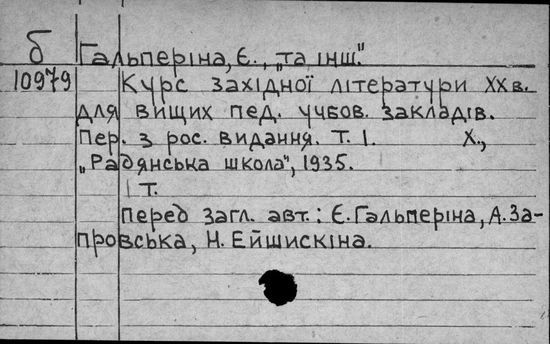 б Гальперіна, Є., „та інш."
10979 Курс західної літератури XX в.
для вищих пед. учбов. закладів.
Пер. з рос. видання. Т. 1. Х.,
„Радянська школа", 1935.
1 т.
Перед загл. авт.: Є. Гальперіна, А. За-
провська, Н. Ейшискіна.